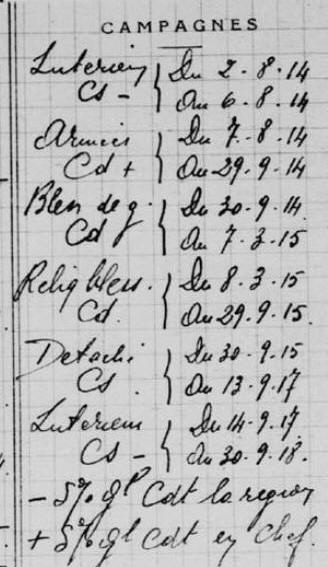 CAMPAGNES
Intérieur } Du 2-8-14
CS - } Au 6-8-14
Armées } Du 7-8-14
Cd + } Au 29-9-14
Bless de g. } Du 30-9-14
Cd } Au 7-3-15
Reliq bless. } Du 8-3-15
Cd. } Au 29-9-15.
Détaché } Du 30-9-15
CS } Au 13-9-17
Intérieur } Du 14-9-17.
CS - } Au 30-9-18.
- S/% gl Cdt la région
+ S/% gl cdt en Chef.